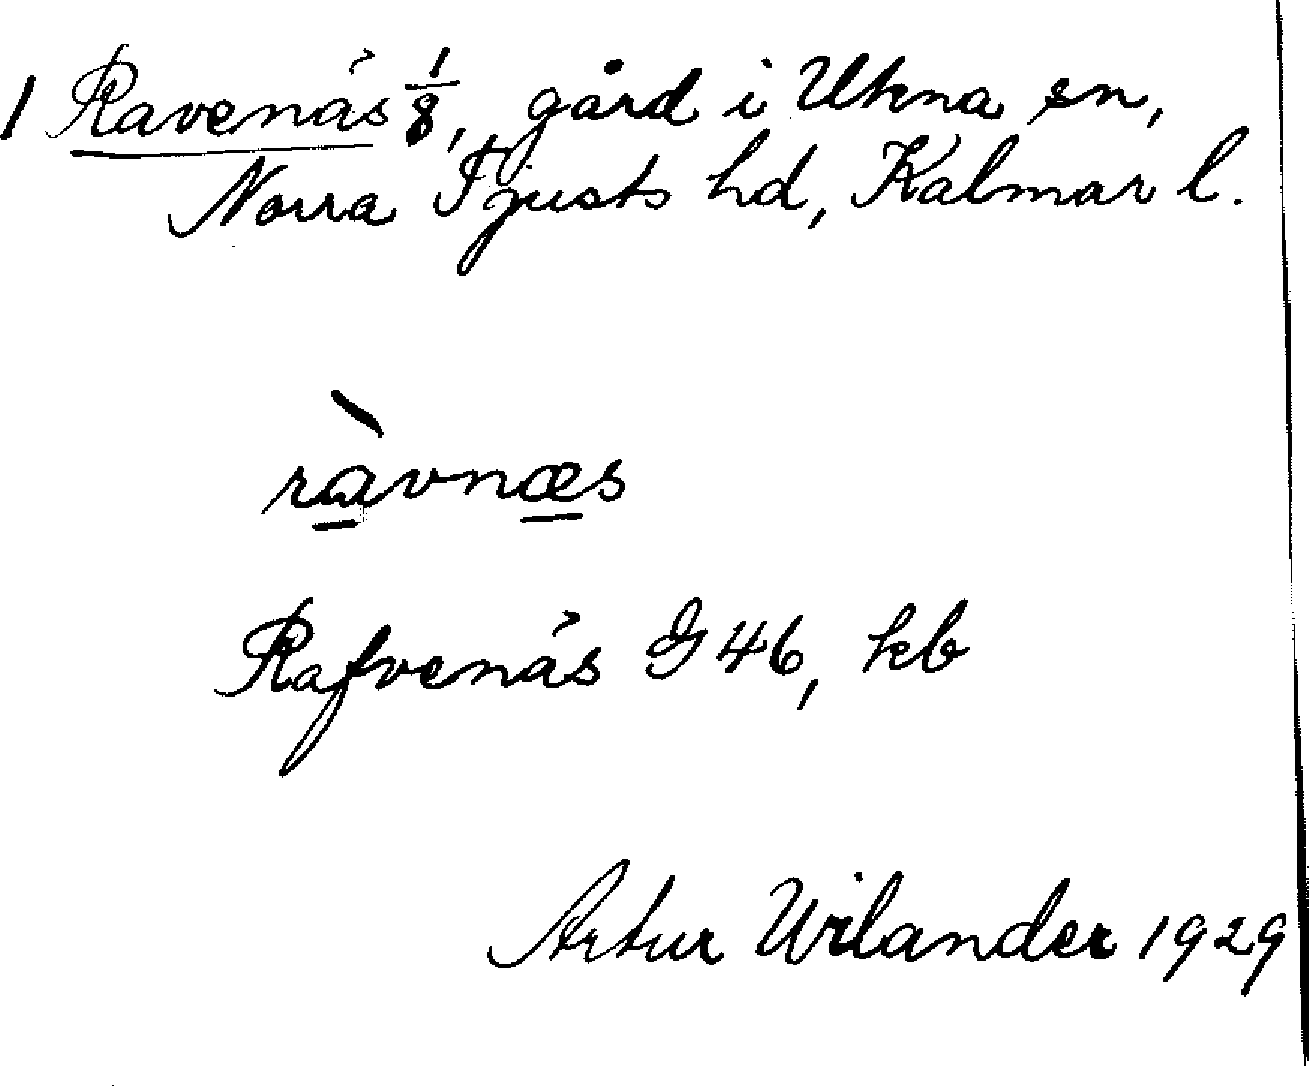 1 Ravenäs 1/8, gård i Ukna sn,
Norra Tjusts hd, Kalmar l.
ràvnæs
Rafvenäs G 46, kb
Artur Wilander 1929